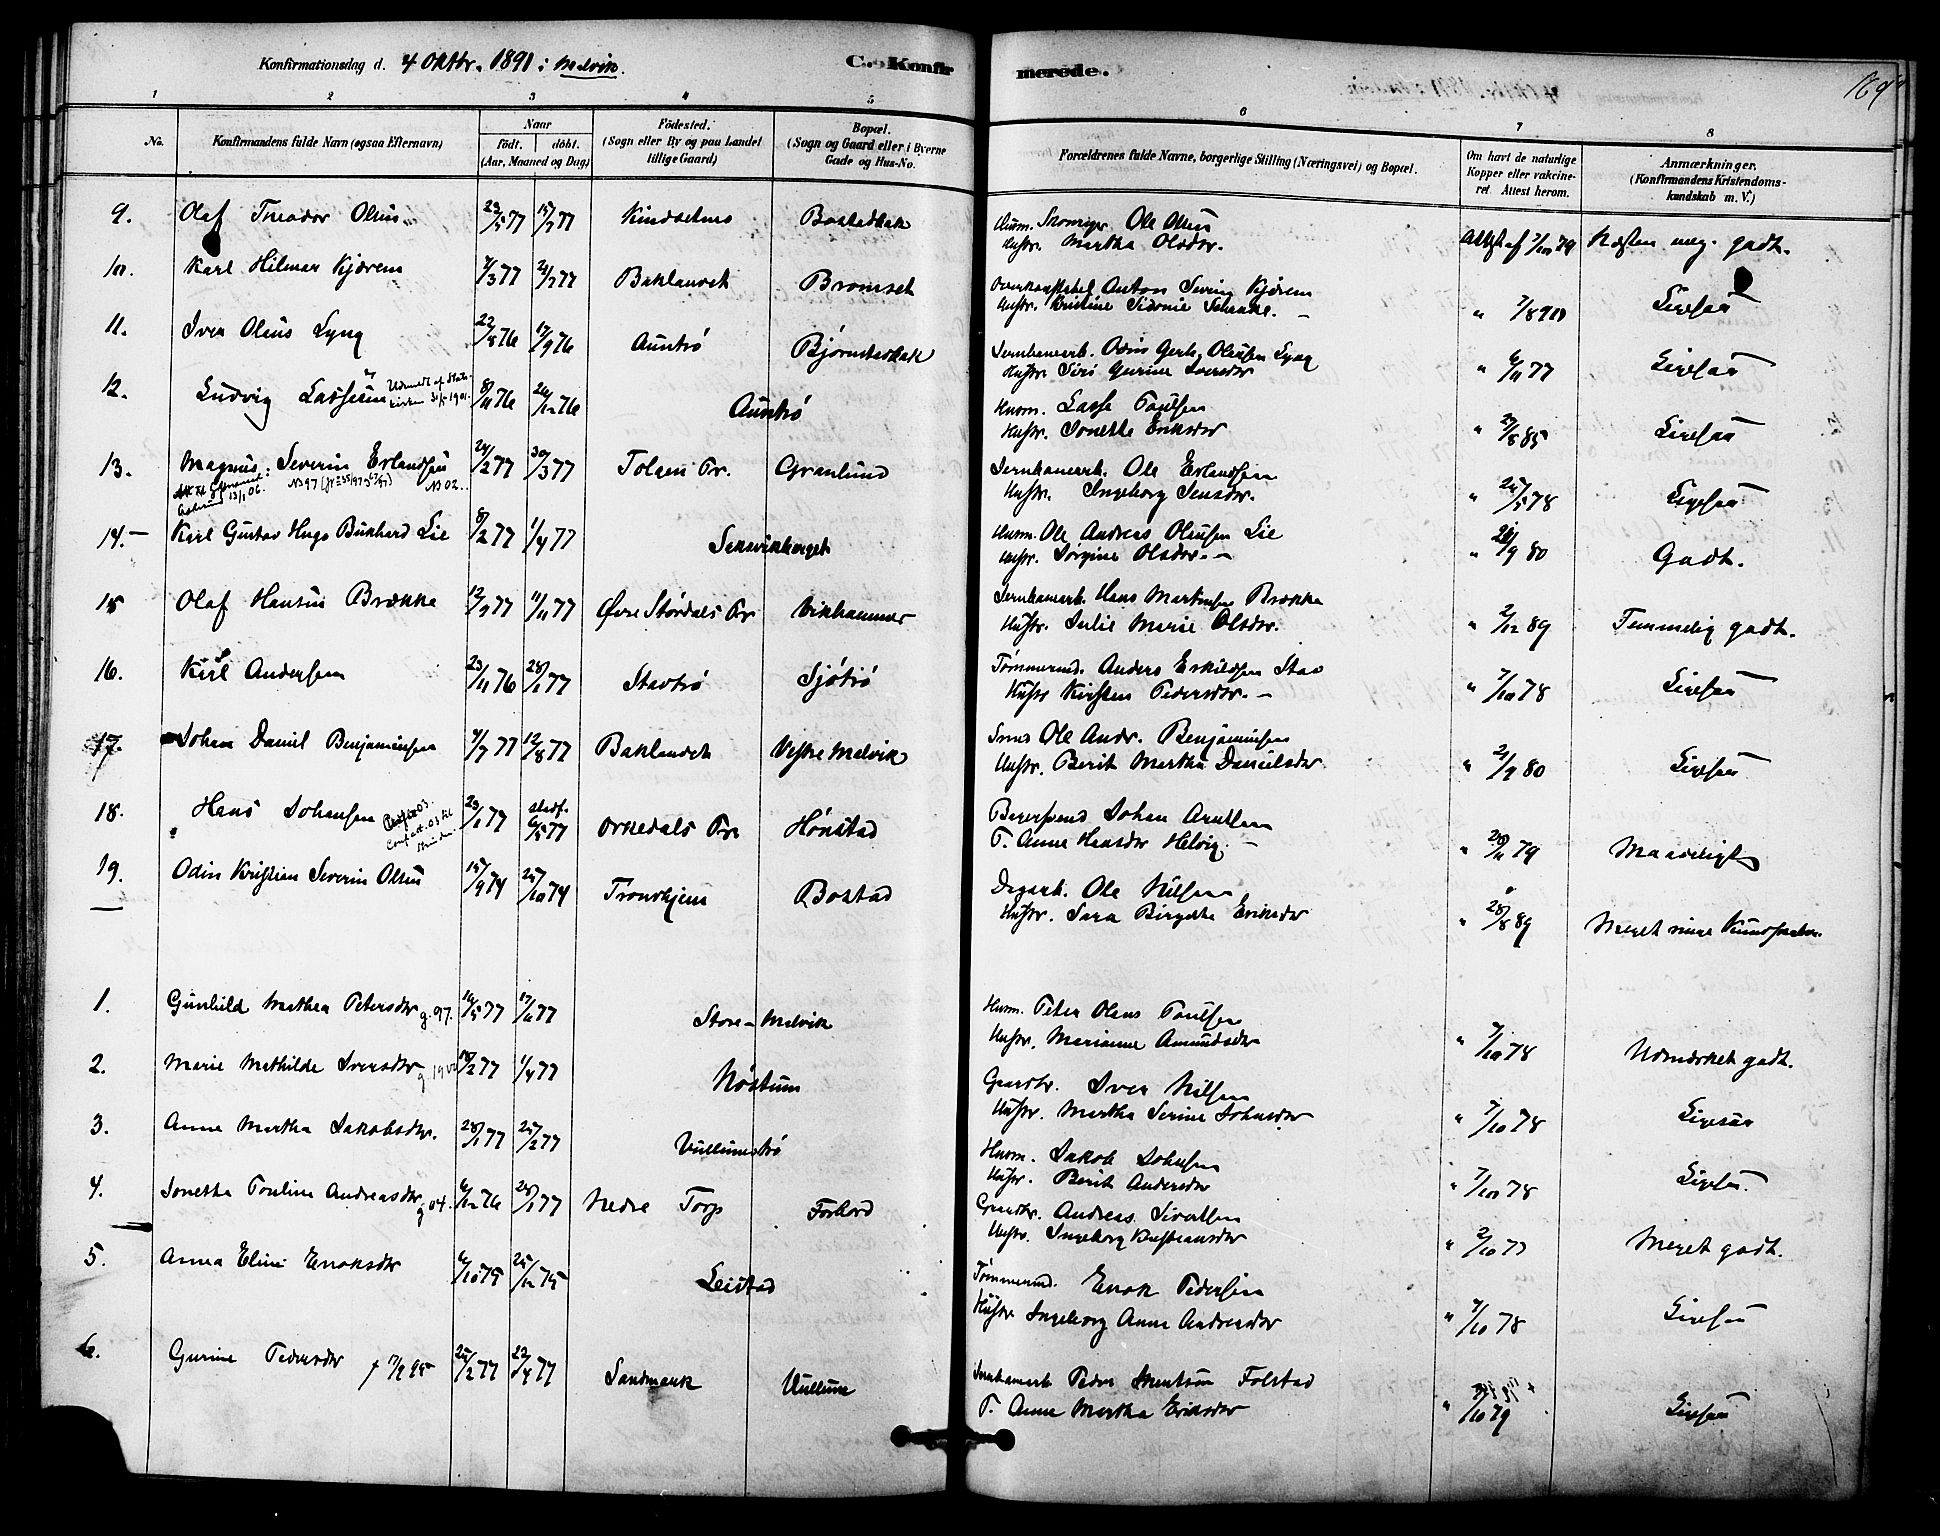 Konfirmationsdag d. 4 Oktbr. 1891 i Melvik.
C. Konfirmerede.
169
1 2 3 4 5 6 7 8
No.
Konfirmandens fulde Navn (ogsaa Efternavn)
Naar
født. døbt.
(Aar, Maaned og Dag)
Fødested.
(Sogn eller By og paa Landet
tillige Gaard)
Bopæl.
(Sogn og Gaard eller i Byerne
Gade og Hus-No.
Forældrenes fulde Navne, borgerlige Stilling (Næringsvei) og Bopæl.
Om havt de naturlige
Kopper eller vakcine-
ret. Attest herom.
Anmærkninger.
(Konfirmandens Kristendoms-
kundskab m. V.)
9. Olaf Theodor Olsen 23/5 77 15/7 77 Kindsetmo Bostadbak
Husm. Skomager Ole Olsen
Hustr. Martha Olsdtr. Attest af 7/10 79 Næsten meg. godt.
10. Karl Hilmar Kjørem 7/3 77 Baklandet Bromset
Overkonstabel Anton Severin Kjørem
Hustr. Kristine Sidonie " Ligesaa
11. Iver Olaus Lyng 22/8 76 17/9 76 Auntrø Bjørnstadbak
Jernbanearb. Odin Gerh. Olausen Lyng
Hustr. Siri Gurine Iversdtr " 6/11 77 Ligesaa
12. Ludvig Lassesen Udmeldt af Stats-
kirken 1901. 8/11 76 26/12 76 Auntrø
Husm. Lasse Paulsen
Hustr. Jonetta Eriksdtr " 29/8 85 Ligesaa
13. Magnus Severin Erlandsen 24/2 77 30/3 77 Tolgen Pr. Granlund
N 97 N 02.
13/1 06.
Jernbanearb. Ole Erlandsen
Hustr. Ingeborg Jensdtr. " 25/5 78 Ligesaa
14. Karl Gustav Hugo Burkhard Lie 8/2 77 1/4 77 Saksvikberget
Husm. Ole Andreas Olausen Lie
Hustr. Jørgine Olsdtr. " 26/9 80 Godt.
15 Olaf Hansen Brække 12/9 77 11/11 77 Øvre Størdals Pr. Vikhammer
Jernbanearb. Hans Martinsen Brække
Hustr. Julie Marie Olsdtr. " 2/12 89 Temmelig godt.
16. Karl Andersen 23/11 76 28/1 77 Stavtrø Sjøtrø
Tømmermd. Anders Eskildsen Stav
Hustr Kirsten Pedersdtr. " 7/10 78 Ligesaa
17. Johan Daniel Benjaminsen 4/7 77 12/8 77 Baklandet Vestre Melvik
Smed Ole Andr. Benjaminsen
Hustr. Berit Martha Danielsdtr " 21/9 80 Ligesaa
18. Hans Johansen 29/1 77 stadf.
6/5 77 Orkedals Pr. Hønstad
Johan Arntsen
F. Anne Hansdtr Helvig. " 20/11 79 Maadeligt
19. Odin Kristian Severin Olsen 15/9 74 25/10 74 Trondhjem Bostad
Dagarb. Ole Nilsen
Hustr. Sara Birgitte Eriksdtr " 28/8 89 Meget ringe Kundskaber.
1. Gunhild Mathea Petersdtr g. 97. 16/5 77 17/6 77 Store-Melvik
Husm. Peter Olaus Paulsen
Hustr. Marianne Amundsdtr " 7/10 78 Udmærket godt.
2. Marie Mathilde Iversdtr g 1902 18/2 77 1/4 77 Nøstum
Gaardbr. Iver Nilsen
Hustr. Martha Serine Johnsdtr " 7/10 78 Ligesaa
3. Anne Martha Jakobsdtr. 28/1 77 25/2 77 Vullumstrø
Husm. Jakob Johnsen
Hustr. Berit Andersdtr " 7/10 78 Ligesaa.
4. Jonetha Pauline Andreasdtr g 04. 6/12 76 28/1 77 Nedre Torp Forbord
Gaardbr. Andreas Sivertsen
Hustr. Ingeborg Kristiansdtr " 2/10 77 Meget godt.
5. Anna Eline Enoksdtr 6/10 75 25/12 75 Leistad
Tømmermd. Enok Pedersen
Hustr Ingeborg Anna Andreasdtr " 7/10 78 Ligesaa
6. Gurine Pedersdtr 25/2 77 22/4 77 Sandmark Vullum
Jernbanearb Peder Folstad
F. Anne Martha Eriksdtr " 7/10 79 Ligesaa